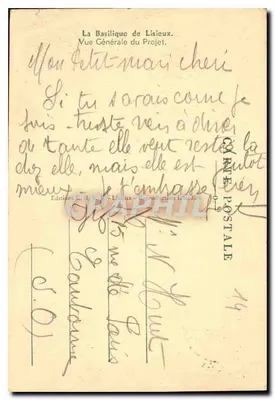 La Basilique de Lisieux.
Vue Générale du Projet.
Mon petit mari chéri
Si tu savais come je
suis triste rien à dire
de tante elle veut rester là
chez elle, mais elle est plutôt
mieux - je t'embrasse bien
CARTE POSTALE
Mr N. Huet
rue de Paris
(S.O)
14